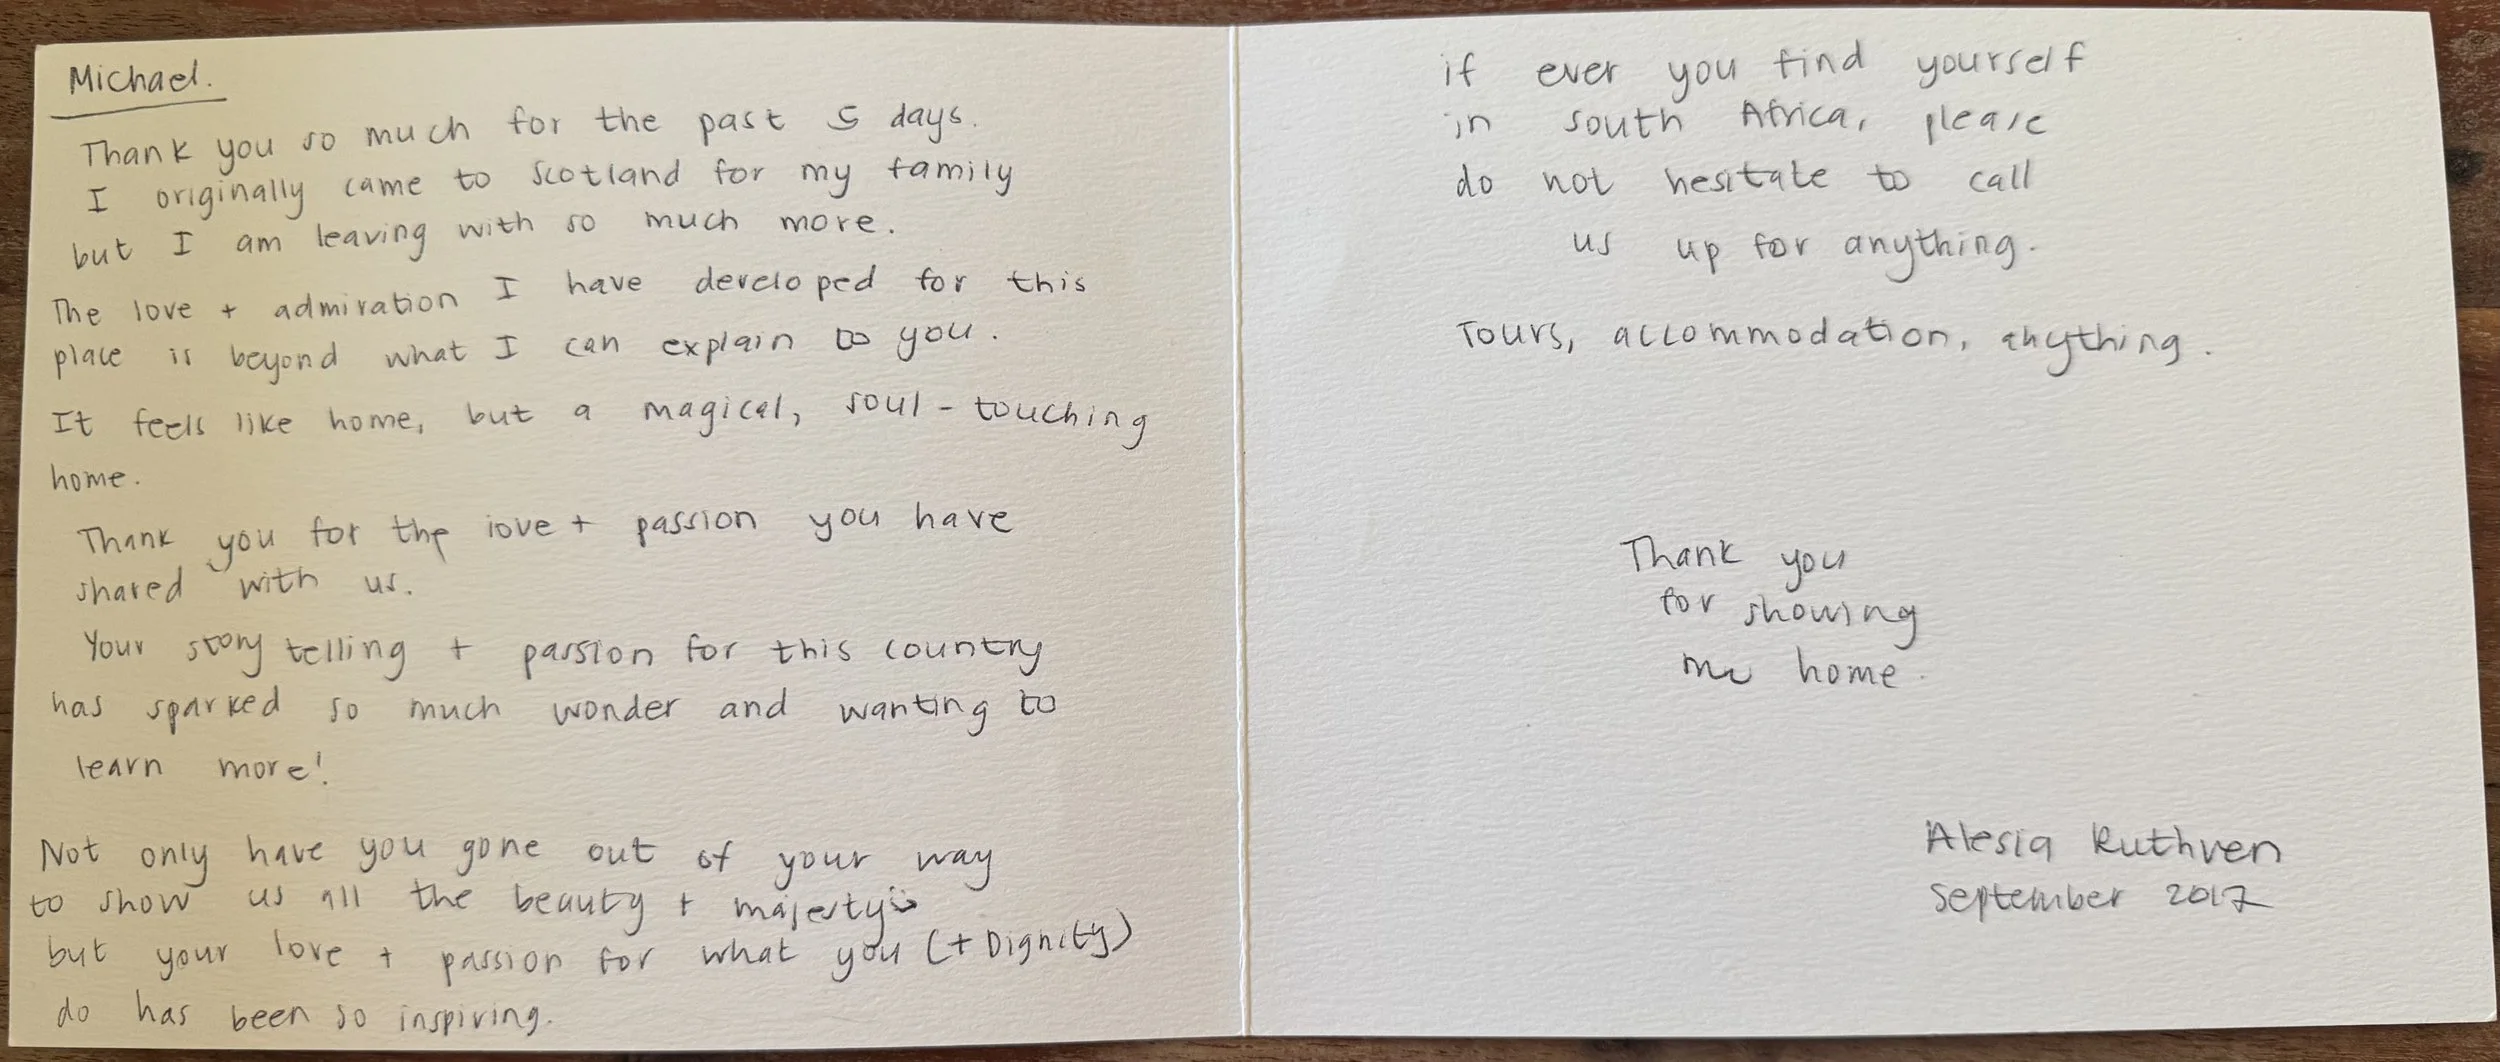 Michael.
Thank you so much for the past 5 days.
I originally came to Scotland for my family
but I am leaving with so much more.
The love + admiration I have developed for this
place is beyond what I can explain to you.
It feels like home, but a magical, soul-touching
home.
Thank you for the love + passion you have
shared with us.
Your story telling + passion for this country
has sparked so much wonder and wanting to
learn more!
Not only have you gone out of your way
to show us all the beauty + majesty
but your love + passion for what you (+ Dignity)
do has been so inspiring.
if ever you find yourself
in south Africa, please
do not hesitate to call
us up for anything.
Tours, accommodation, anything.
Thank you
for showing
me home.
Alesia Ruthven
September 2017